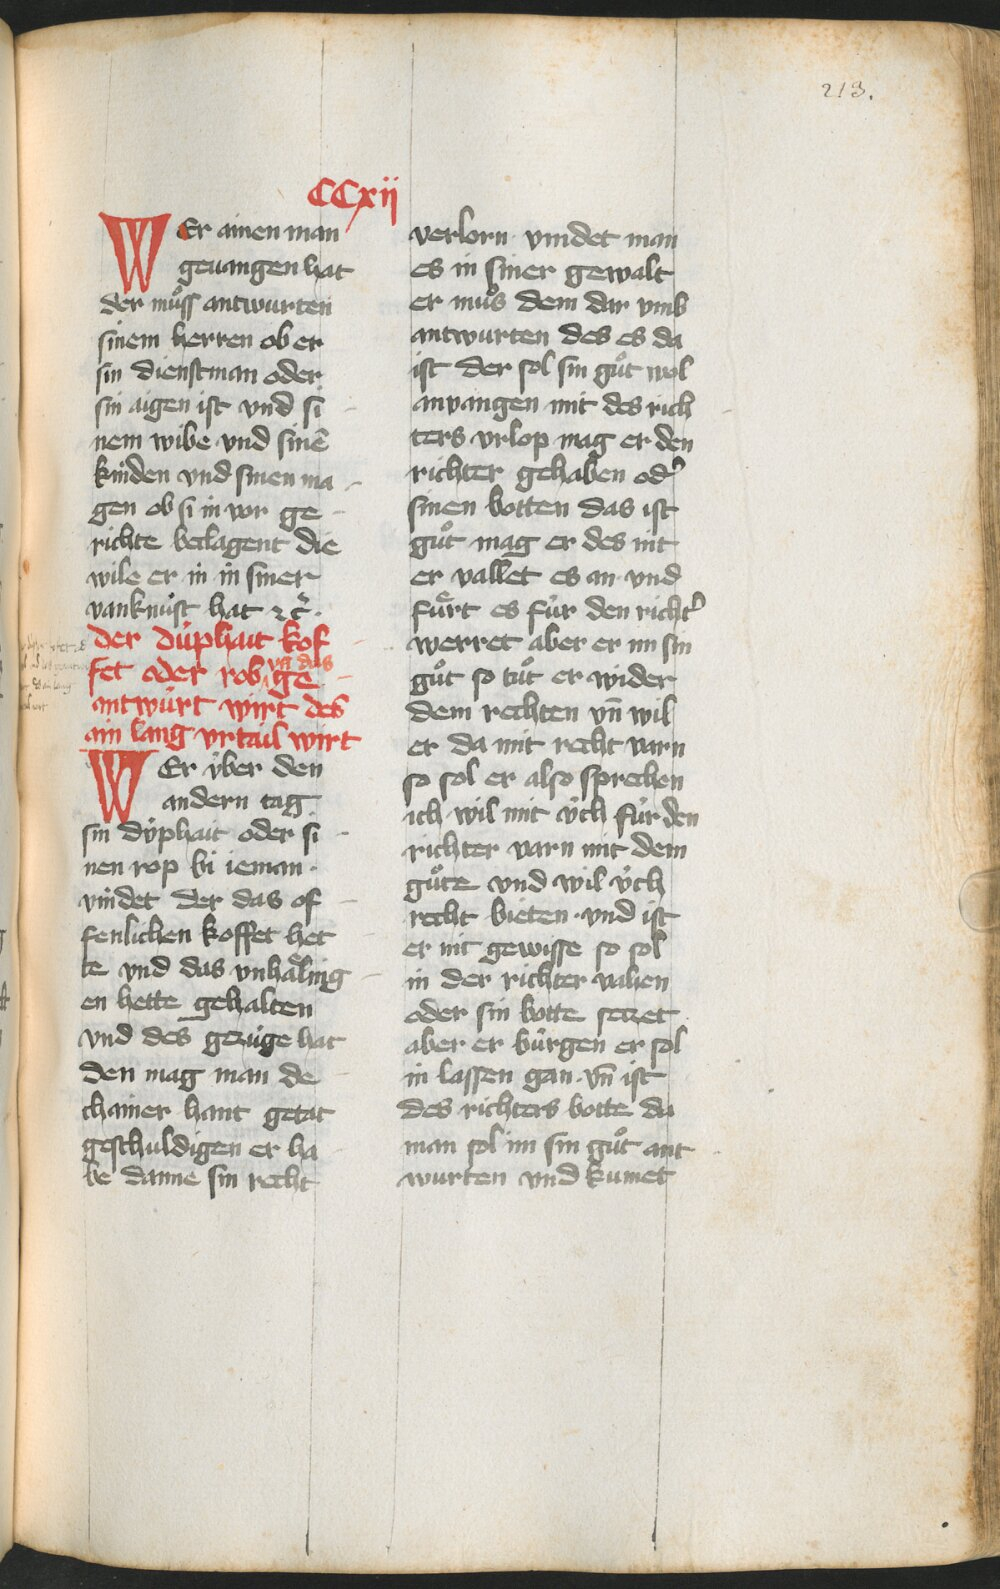 213.
CCxij
WEr ainen man
geuangen hat
der muͦss antwurten
sinem herren ob er
sin dienstman oder
sin aigen ist vnd si
nem wibe vnd sinē
kinden vnd sinen ma
gen ob si in vor ge
richte beclagent die
wile er in in siner
vanknúst hat ⁊c̉.
der dúphait kof
fet oder rob vn̄ das ge
antwúrt wirt des
ain lang vrtail wirt
WEr ẏber den
andern tag
sin dẏphait oder si
nen rop bi ieman
vindet der das of
fenlichen koffet het
te vnd das vnhåling
en hette gehalten
vnd des gezúge hat
den mag man de
chainer hant getat
geschuldigen er ha
be danne sin recht
verlorn vindet man
es in siner gewalt
er muͦs dem dar vmb
antwurten des es da
ist der sol sin guͦt wol
anvangen mit des rich
ters vrlop mag er den
richter gehaben od̉
sinen botten das ist
guͦt mag er des nit
er vallet es an vnd
fuͤrt es fúr den richt̉
werret aber er im sin
guͦt so tuͦt er wider
dem rechten vn̄ wil
er da mit recht varn
so sol er also sprechen
ich wil mit v́ch fúr den
richter varn mit dem
guͦte vnd wil v́ch
recht bieten vnd ist
er nit gewisse so sol
in der richter vahen
oder sin botte setzet
aber er búrgen er sol
in lassen gan. vn̄ ist
des richters botte da
man sol im sin guͦt ant
wurten vnd kumet